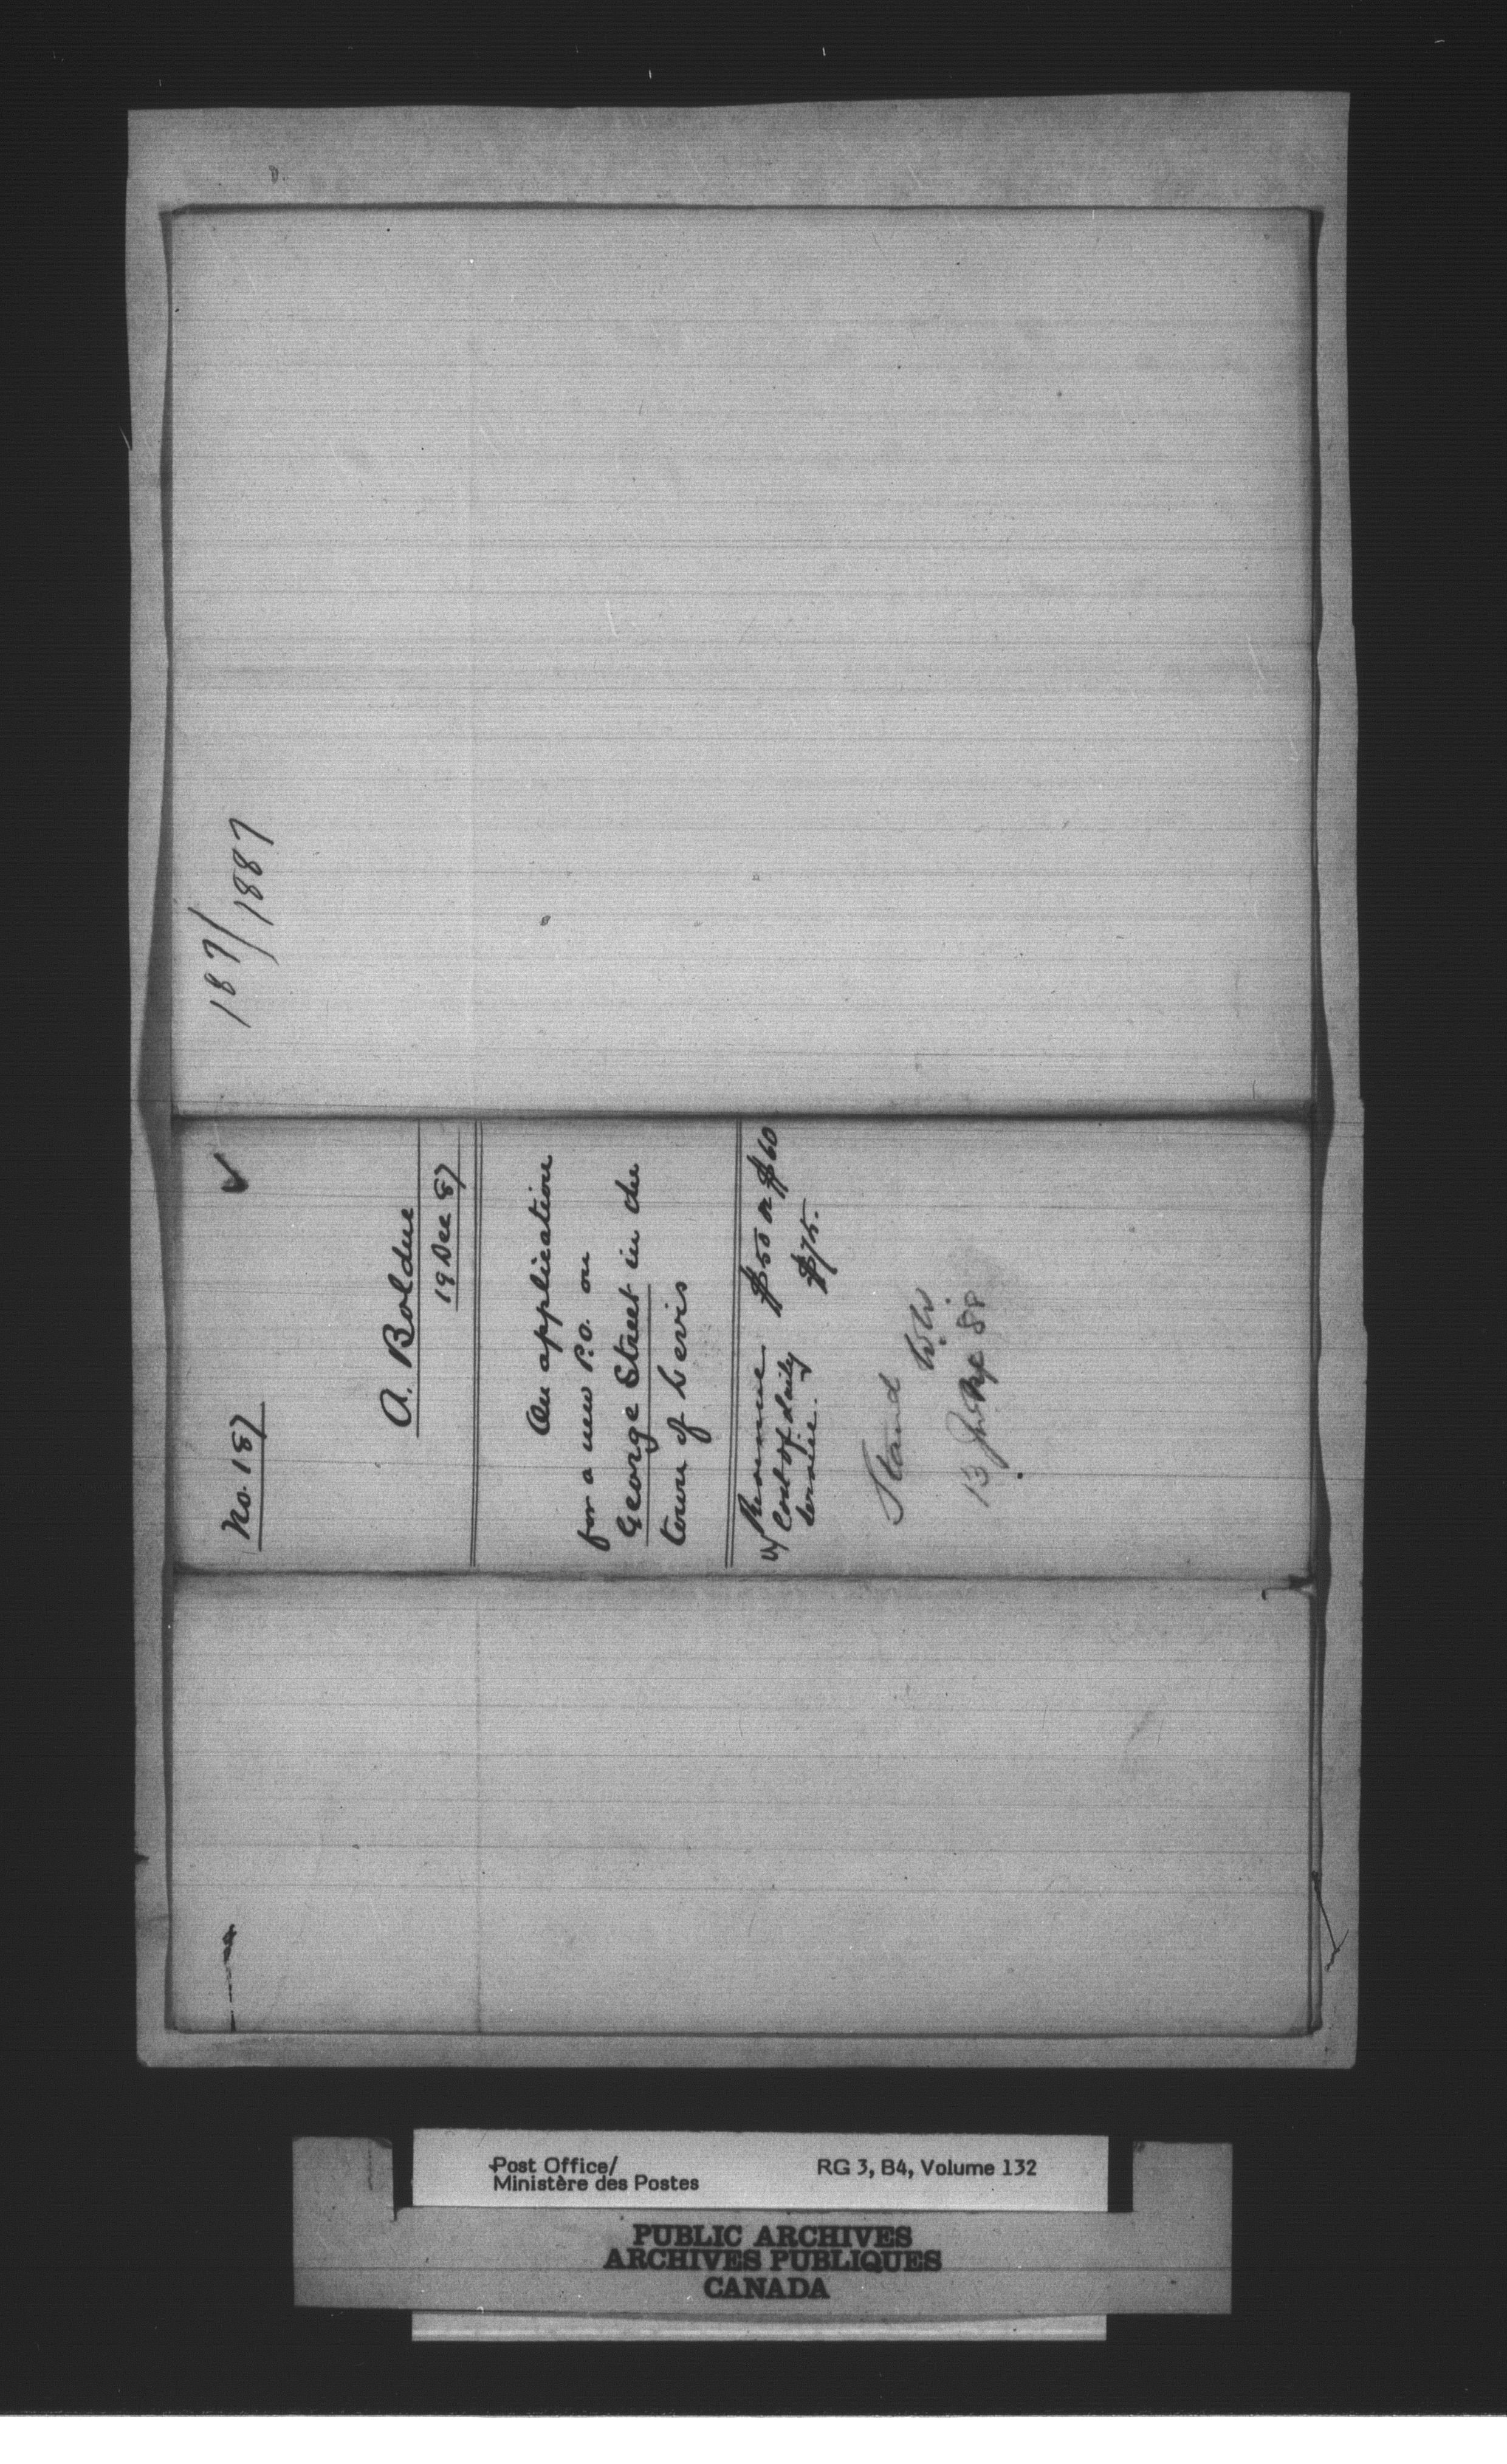 187/1887
No. 187
A. Bolduc
19 Dec 87
On application
for a new P.O. on
George Street in the
town of Levis
Revenue $50 or $60
Cost of daily $75.
service.
Stand
W.W.
13 88
Post Office/
Ministère des Postes
RG 3, B4, Volume 132
PUBLIC ARCHIVES
ARCHIVES PUBLIQUES
CANADA